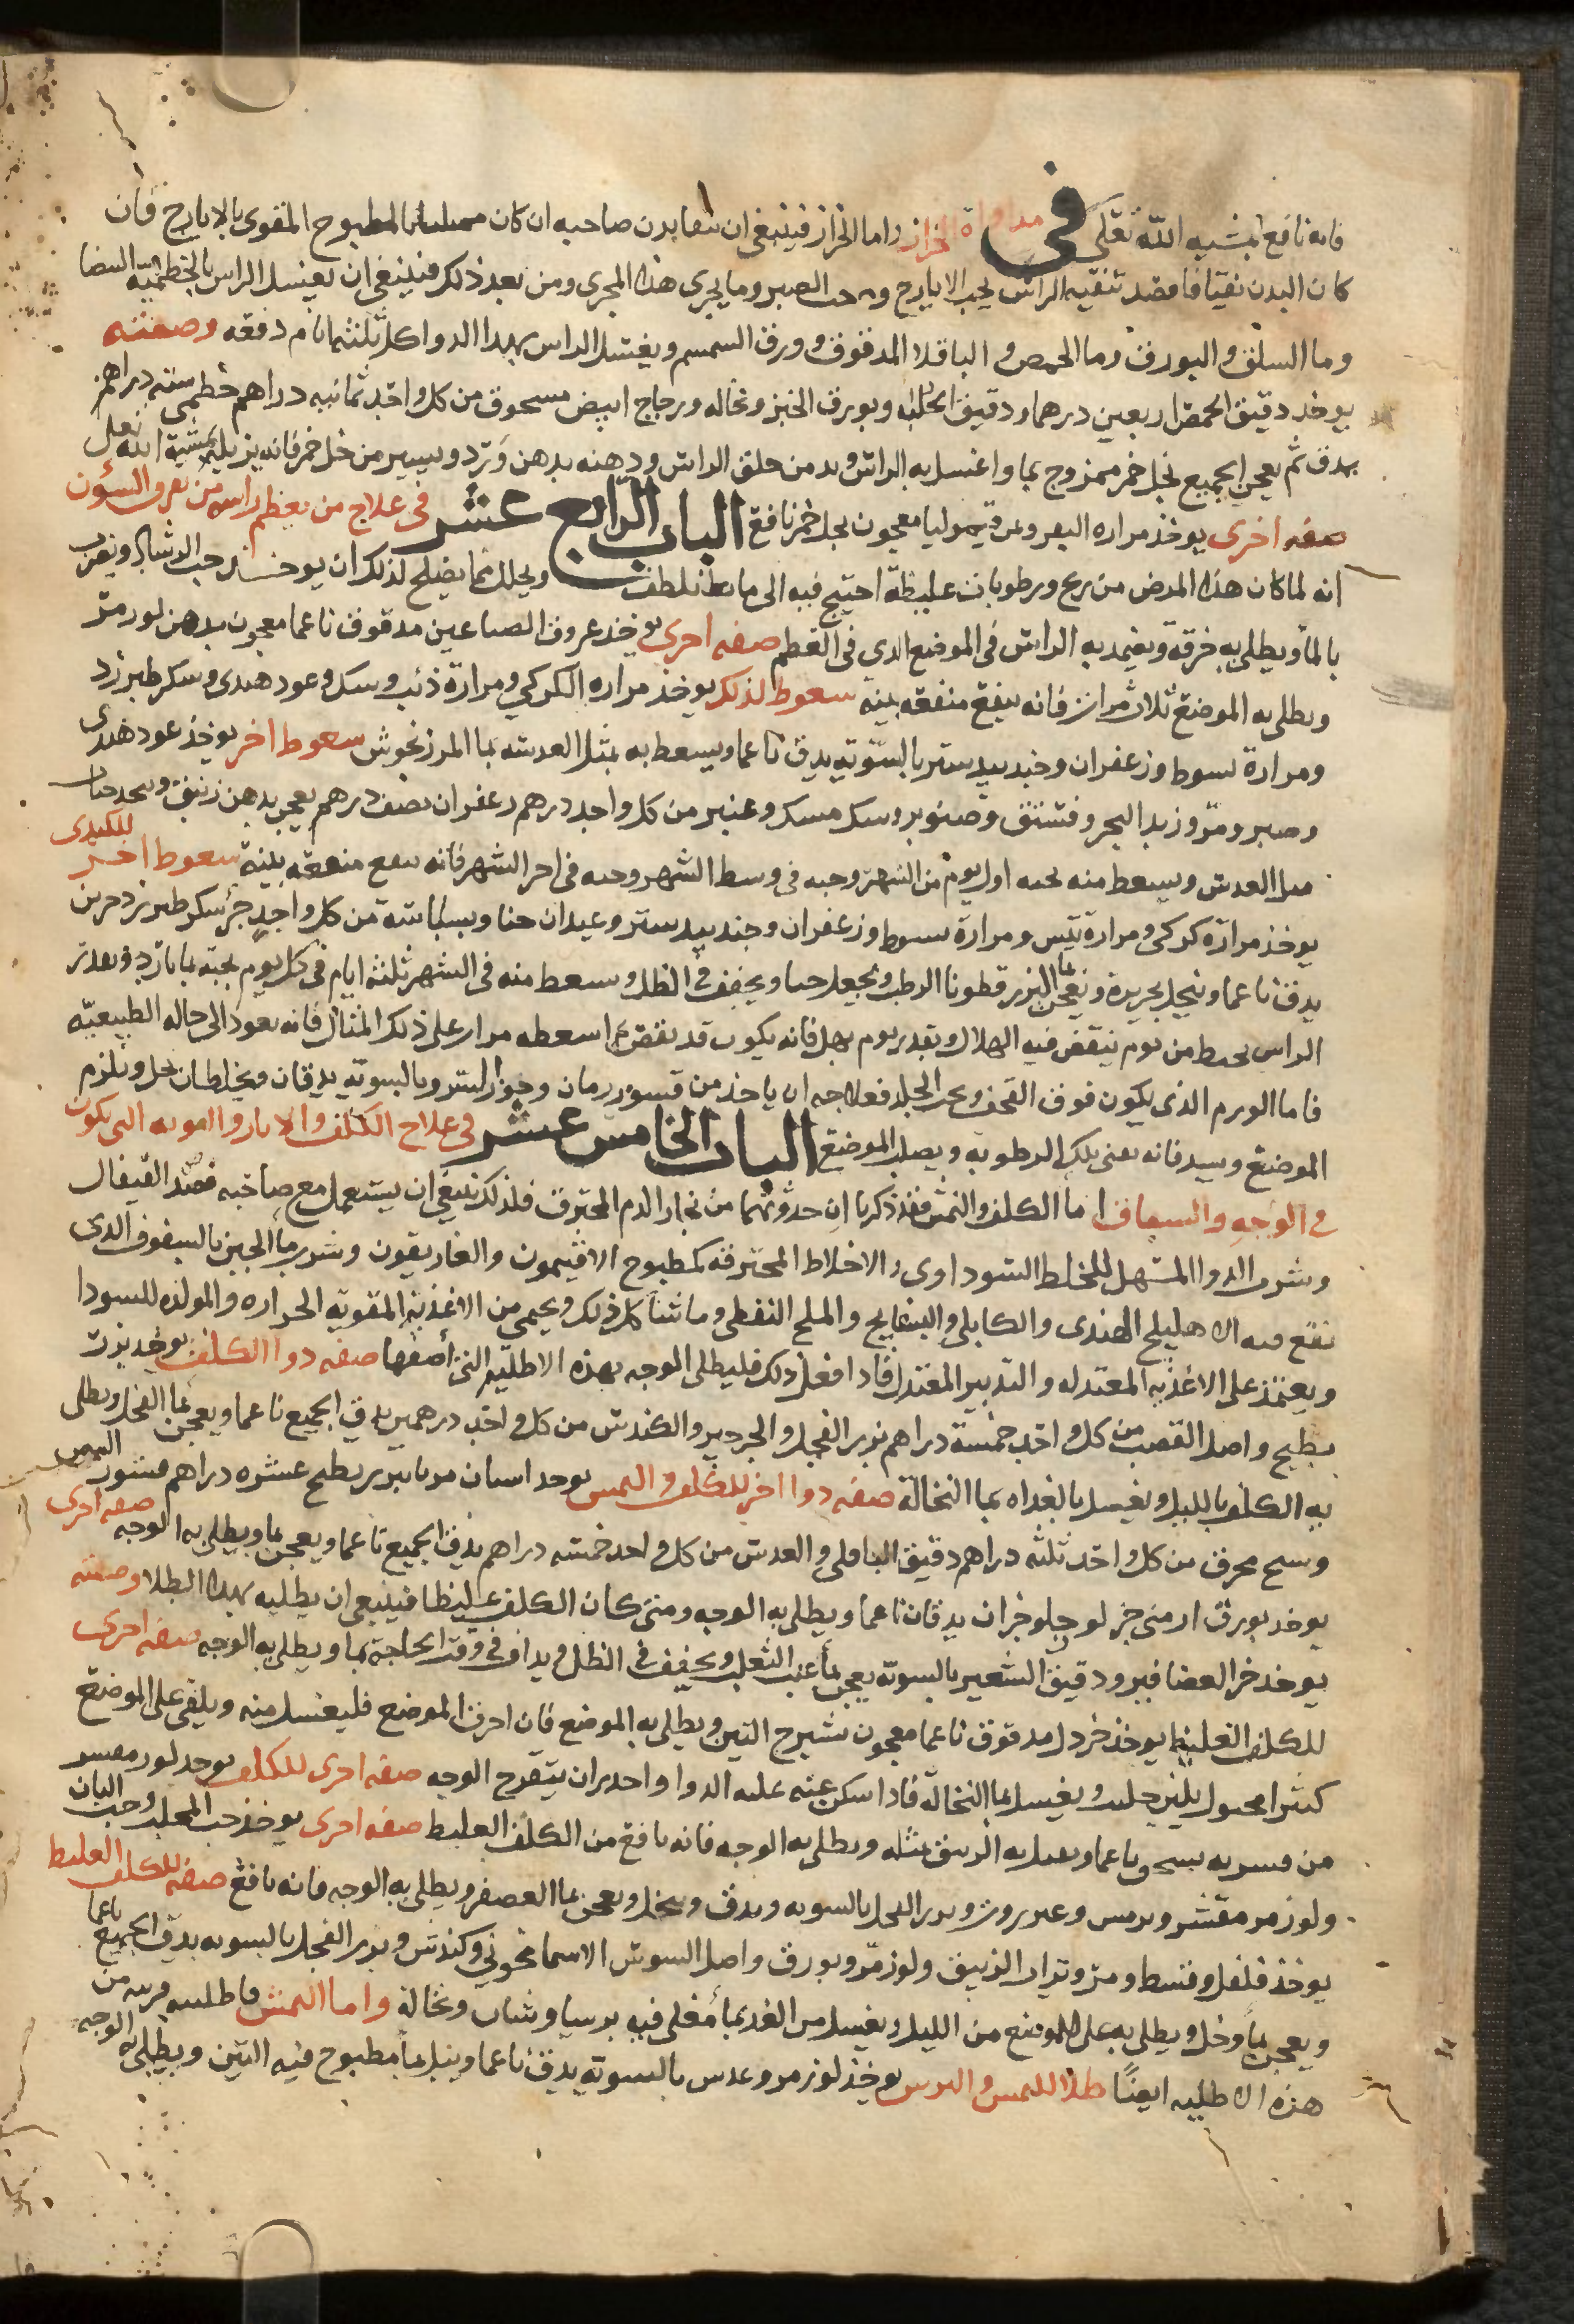 فانه نافع بمشيه الله تعلى في مداواة الحزاز واما الحزاز فينبغى ان ينقا بدن صاحبه ان كان ممتليا بالمطبوخ المقوى بالايارج فان
كان البدن نقيا فاقصد تنقيه الراس بحب الايارج وحب الصبر وما يجرى هذا المجرى ومن بعد ذلك فينبغى ان يغسل الراس بالخطمية البيضا
وما السلق والبورق وما الحمص والباقلا المدقوق وورق السمسم ويغسل الراس بهذا الدوا كل ثلثه ايام دفعه وصفته
يوخد دقيق الحمص اربعين درهما ودقيق الحلبة وبورق الخبز ونخاله وزجاج ابيض مسحوق من كل واحد ثمانيه دراهم خطمى سته دراهم
يدق ثم يعجن الجميع بخل خمر ممزوج بما واغسل به الراس وبد من حلق الراس ودهنه بدهن ورد ويسير من خل خمر فانه يزيله بمشية الله تعلى
صفه اخرى يوخذ مراره البقر وعرق قيموليا معجون بخل خمر نافع الباب الرابع عشر فى علاج من يعظم راسه من تفرق الشؤن
انه لما كان هذا المرض من ريح ورطوبات غليظة احتيج فيه الى ما يلطف ويحلل فما يصلح لذلك ان يوخذ حب الرشاد ويضرب
بالما ويطلى به خرقة ويضمد به الراس فى الموضع الدى فى العظم صفه اخرى يوخذ عروق الصباغين مدقوق ناعما معجون بدهن لوز مر
ويطلى به الموضع ثلاث مرات فانه ينفع منفعه بينه سعوط لذلك يوخذ مراره الكركي ومرارة ذئب وسك وعود هندى وسكر طبرزد
ومرارة سبوط وزعفران وجندبيدستر بالسويه يدق ناعما ويسعط به بمثل العدسه بما المرزنجوش سعوط اخر يوخذ عود هندى
وصبر ومر وزبد البحر وفستق وصنوبر وسك مسك وعنبر من كل واحد درهم زعفران نصف درهم يعجن بدهن زنبق ويتخذ حبات
مثل العدس ويسعط منه بحبه اول يوم من الشهر وحبه فى وسط الشهر وحبه فى اخر الشهر فانه ينفع منفعه بينة سعوط اخر للكندى
يوخذ مرارة كركى ومرارة تيس ومرارة سبوط وزعفران وجندبيدستر وعيدان حنا وبسباسة من كل واحد جزء سكر طبرزد جزين
يدق ناعما وينخل بحريرة ويعجن بما البزر قطونا الرطب ويجعل حبا ويجفف فى الظل ويسعط منه فى الشهر ثلثه ايام فى كل يوم بحبة بما بارد وبعد تر
الراس بخيط من يوم ينقص فيه الهلال وبقدر يوم يهل فانه يكون قد نقص ثم اسعطه مرار على ذلك المثال فانه يعود الى حاله الطبيعيه
فاما الورم الذى يكون فوق القحف وتحت الجلد فعلاجه ان ياخذ من قشور رمان وجوز السرو بالسويه يدقان ويخلطان بخل ويلزم
الموضع ويشد فانه يفنى تلك الرطوبه ويصلب الموضع الباب الخامس عشر فى علاج الكلف والاثار والقوبه التى يكون
فى الوجه والسعاف اما الكلف والنمش فقد ذكرنا ان حدوثهما من بخار الدم المحترق فلذلك ينبغى ان يستعمل مع صاحبه فصد القيفال
وشرب الدوا المسهل للخلط السوداوى والاخلاط المحترقه كمطبوخ الافتيمون والغاريقون وشرب ما الجبن بالسفوف الدى
يقع فيه الاهليلج الهندى والكابلى والبسفايج والملح النفطى وما شاكل ذلك ويحمى من الاغذية المقوية الحراره والمولده للسودا
ويعتمد على الاغذيه المعتدله والتدبير المعتدل فادا فعل ذلك فليطلى الوجه بهذه الاطليه التى اصفها صفه دوا الكلف يوخد بزر
بطيخ واصل القصب من كل واحد خمسة دراهم بزر الفجل والجرجير والكندس من كل واحد درهمين يدق الجميع ناعما ويعجن بما الفجل ويطلى
به الكلف بالليل ويغسل بالغداه بما النخالة صفه دوا اخر للكلف والنمش يوخد اسنان مربا بزر بطيخ عشره دراهم مقشور السمسم
وسبح محرق من كل واحد ثلثه دراهم دقيق الباقلى والعدس من كل واحد خمسه دراهم يدق الجميع ناعما ويعجن بما ويطلى به الوجه صفه اخرى
يوخد بورق ارمنى جز لوز حلو جزان يدقان ناعما ويطلى به الوجه ومتى كان الكلف غليظا فينبغى ان يطليه بهذا الطلا وصفته
يوخد خر العصافير ودقيق الشعير بالسويه يعجن بما عنب الثعلب ويجفف فى الظل ويداف فى وقت الحاجة بما ويطلى به الوجه صفه اخرى
للكلف الغليظ يوخذ خردل مدقوق ناعما معجون بشيرج التين ويطلى به الموضع فان احرق الموضع فليغسل منه ويلقى على الموضع
كثيرا محلول بلبن حليب ويغسل بما النخالة فادا سكن عنه عليه الدوا واحدر ان يتقرح الوجه صفه اخرى للكلف يوخد لوز مقشر
من قشريه يسحق ناعما ويقتل به الزيبق مثله ويطلى به الوجه فانه نافع من الكلف الغليظ صفه اخرى يوخذ حب المحلب وحب البان
ولوز مر مقشر وترمس وعنزروت وبزر الفجل بالسويه ويدق وينخل ويعجن بما العصفر ويطلى به الوجه فانه نافع صفه للكلف الغليظ
يوخذ فلفل وقسط ومر وتراب الزيبق ولوز مر وبورق واصل السوسن الاسمانجوني وكندس وبزر الفجل بالسويه يدق الجميع ناعما
ويعجن بما وخل ويطلى به على الموضع من الليل ويغسل من الغد بما مغلى فيه برسياوشان ونخالة واما النمش فاطليه قريبه من
هذه الاطليه ايضا طلا للنمس والبرس يوخذ لوز مر وعدس بالسويه يدق ناعما ويبل بما مطبوخ فيه التين ويطلى به الوجه